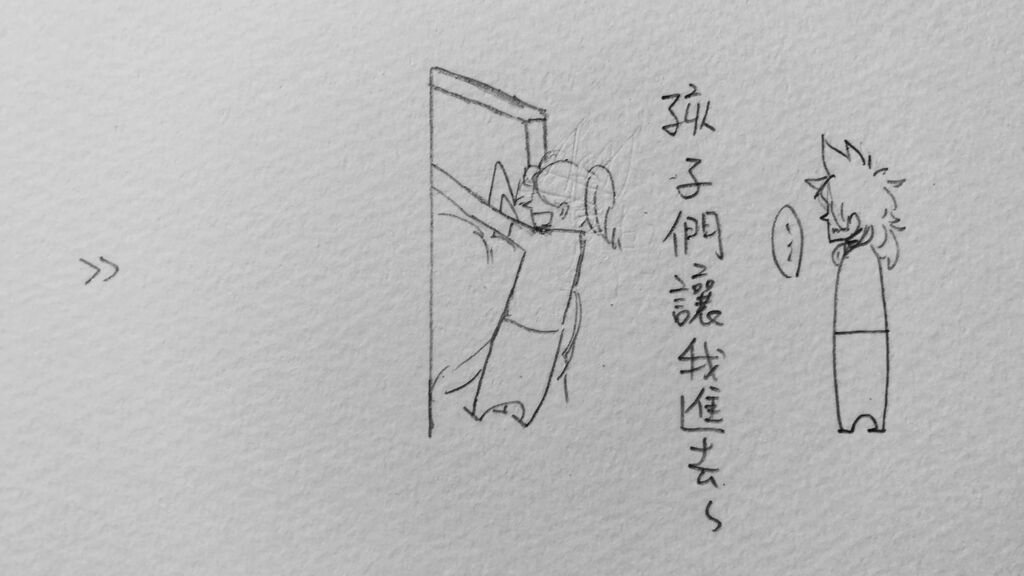 孩子們讓我進去~